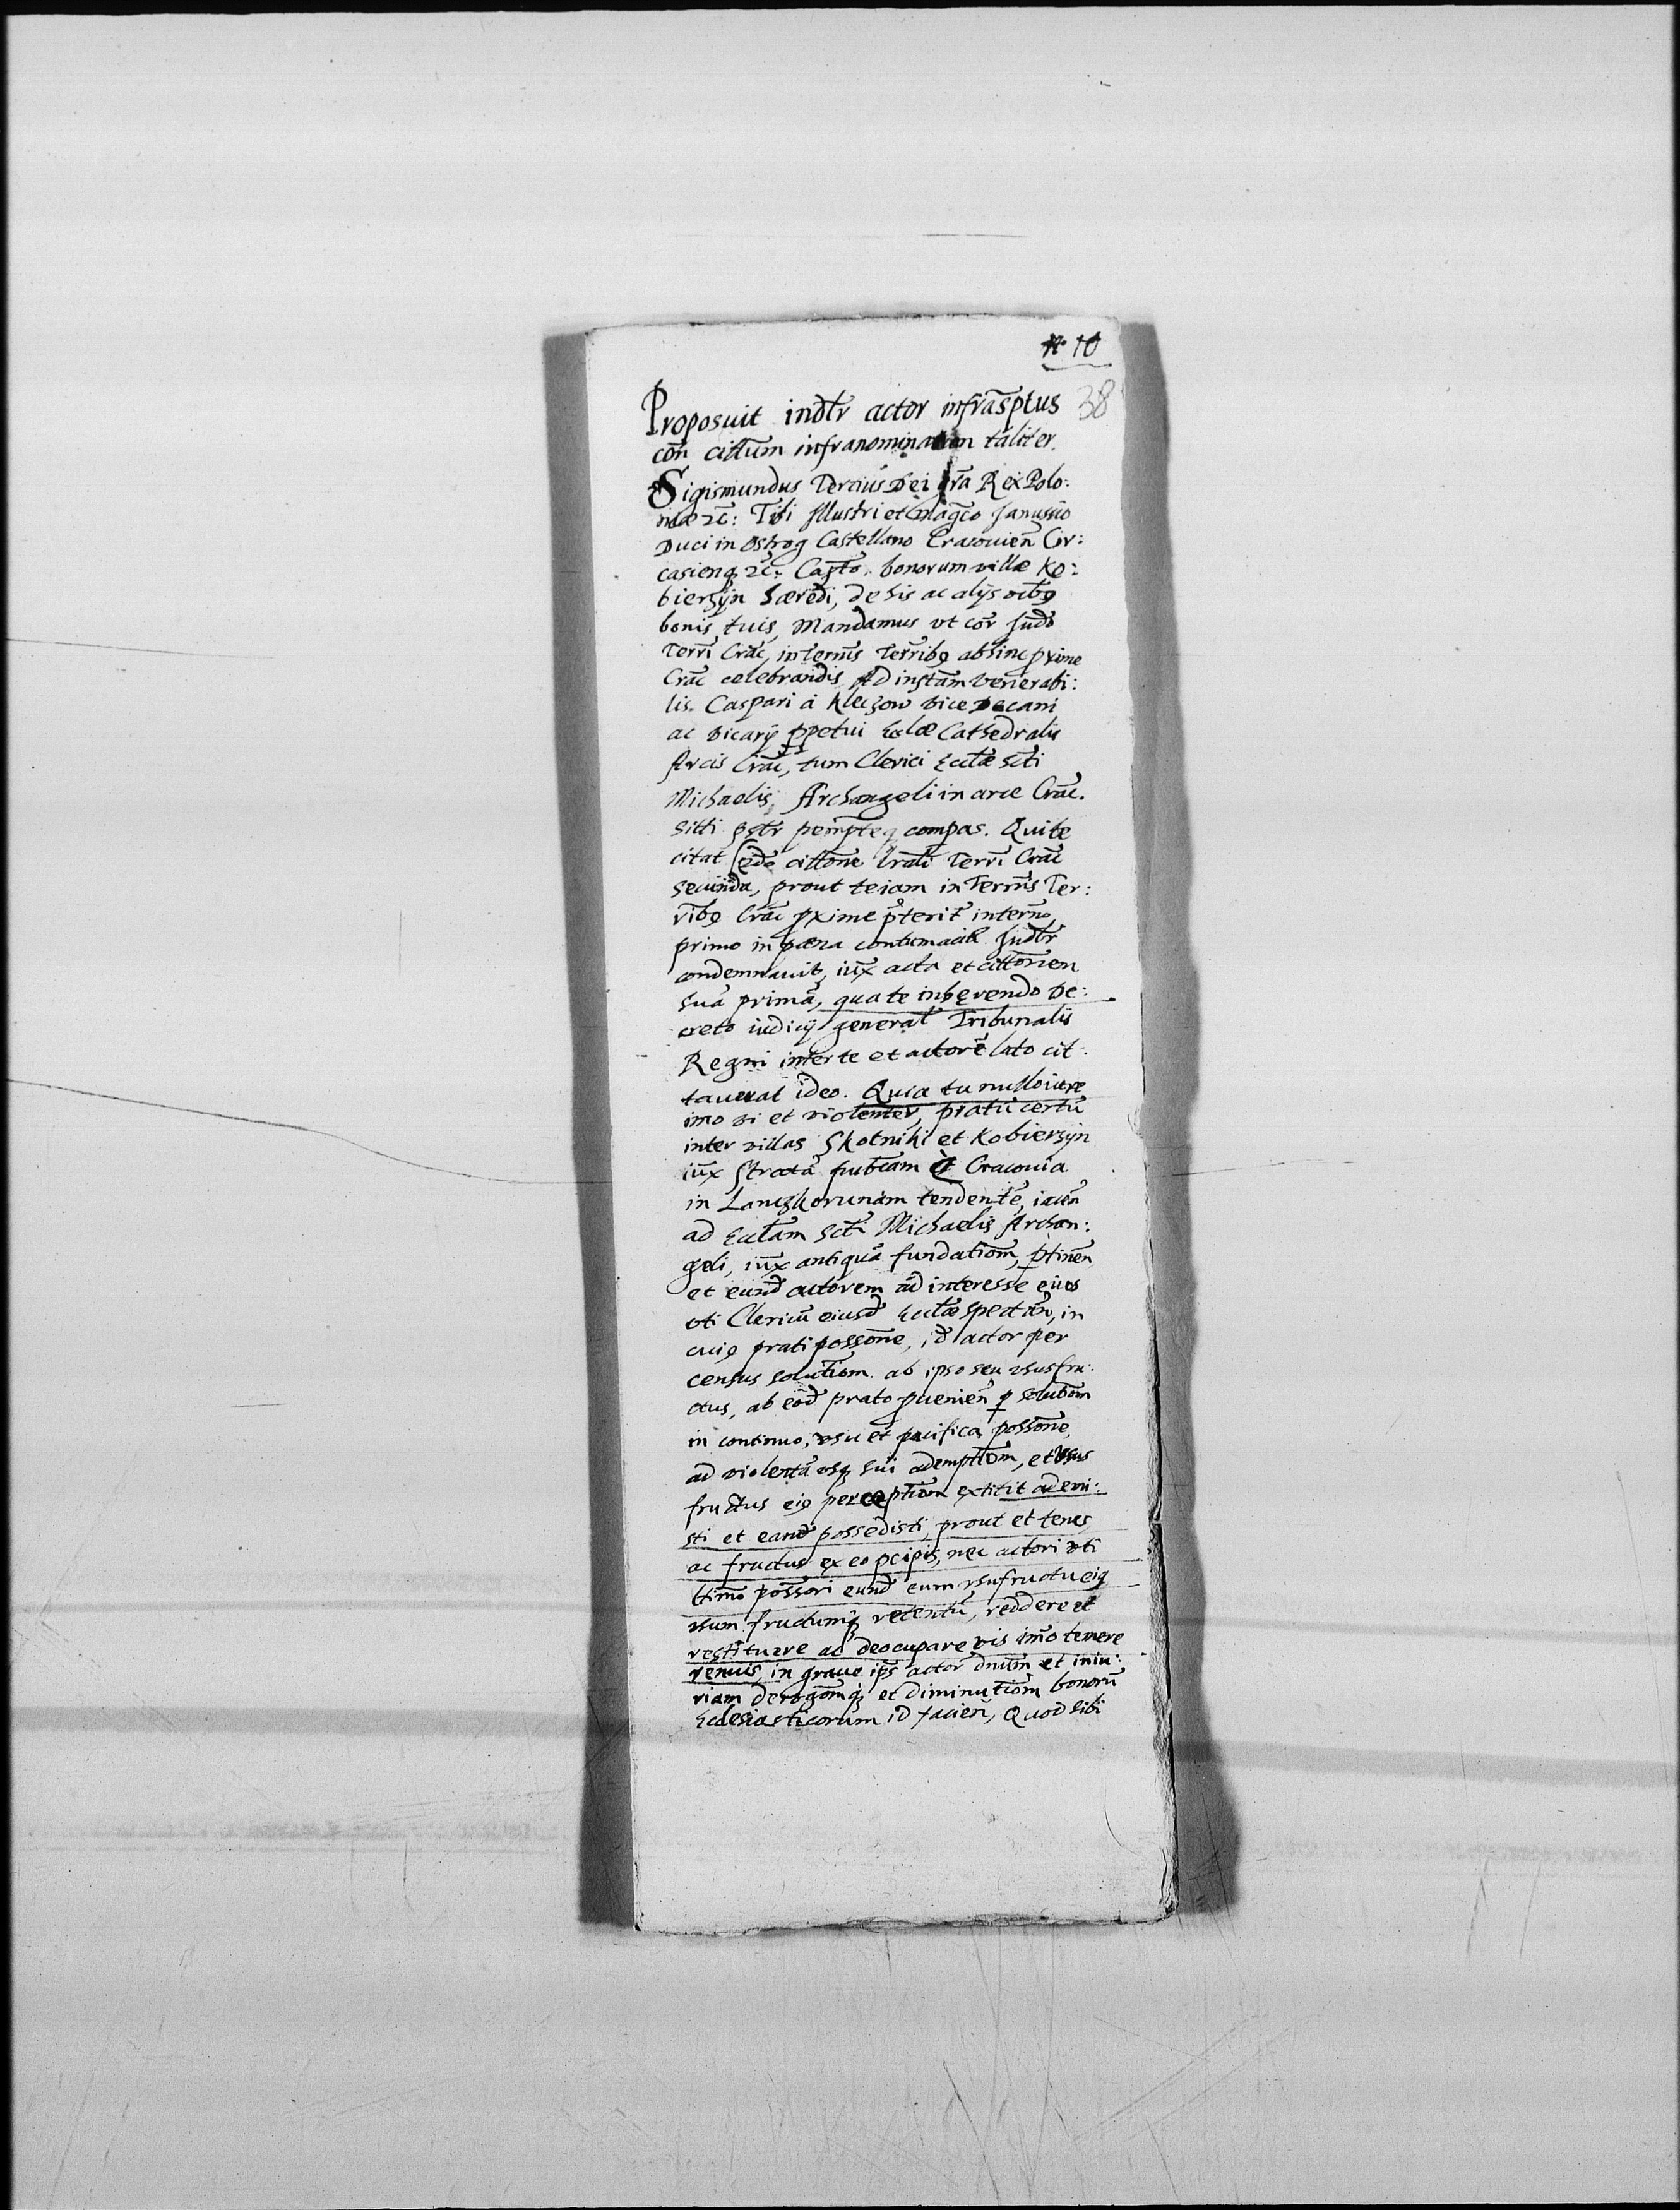 No 10
38
Proposuit indtr actor infrascptus
con cittum infranominatum taliter.
Sigismundus Tercius Dei gra Rex Polo:
niæ zc: Tibi Illustri et Magco Janussio
Duci in Ostrog Castellano Cracouien Cir:
casienq zc: Capto, bonorum villæ Ko:
bierzÿn hæredi, de his ac alÿs oibq
bonis tuis, Mandamus vt cor Judo
Terri Crac, in Termis Terribq abhinc pxime
Crac celebrandis Ad instam venerabi:
lis Caspari à Kleczow vice Decani
ac vicarÿ ppetui Eclæ Cathedralis
Arcis Crac, tum Clerici Ecclæ Scti
Michaelis Archangeli in arce Crac.
Sitti pstr pempteq compas. Qui te
citat ede cittone lrali Terri Crac
secunda, prout te iam in Termis Ter:
ribq Crac pxime pterit interno,
primo in pæna contumaciæ Judtr
condemnauit, iux acta et cittonem
suã primã, qua te inhęrendo De:
creto iudicÿ general Tribunalis
Regni inter te et actorē lato cit:
tauerat ideo. Quia tu nullo iure
imo vi et violenter, pratū certū
inter villas Skotniki et Kobierzÿn
iux stratã publcam è Craconia
in Lanczkorunam tendentē, iacen
ad Ecclam Scti Michaelis Archan:
geli, iux antiquã fundatiom, ptinen
et eund actorem ad interesse eius
vti Clericū eiusd Ecclæ spectan, in
cuiq prati possone, id actor per
census solutiom ab ipso seu vsusfru:
ctus, ab eod prato puenien p solutiom
in continuo, vsu et pacifica possone,
ad violentã vsq sui ademptiom, et vsus
fructus eiq perceptiom extitit ademi:
sti et eand possedisti, prout et tenes
ac fructus ex eo pcipis, nec actori vti
ltimo possori eund cum vsufructu eiq
vsum fructumq retentū, reddere et
restituere ac deocupare vis imo temere
renuis, in graue ips actor dnum et iniu:
riam derogomq et diminutiom bonorū
Ecclesiasticorum id facien, Quod sibi